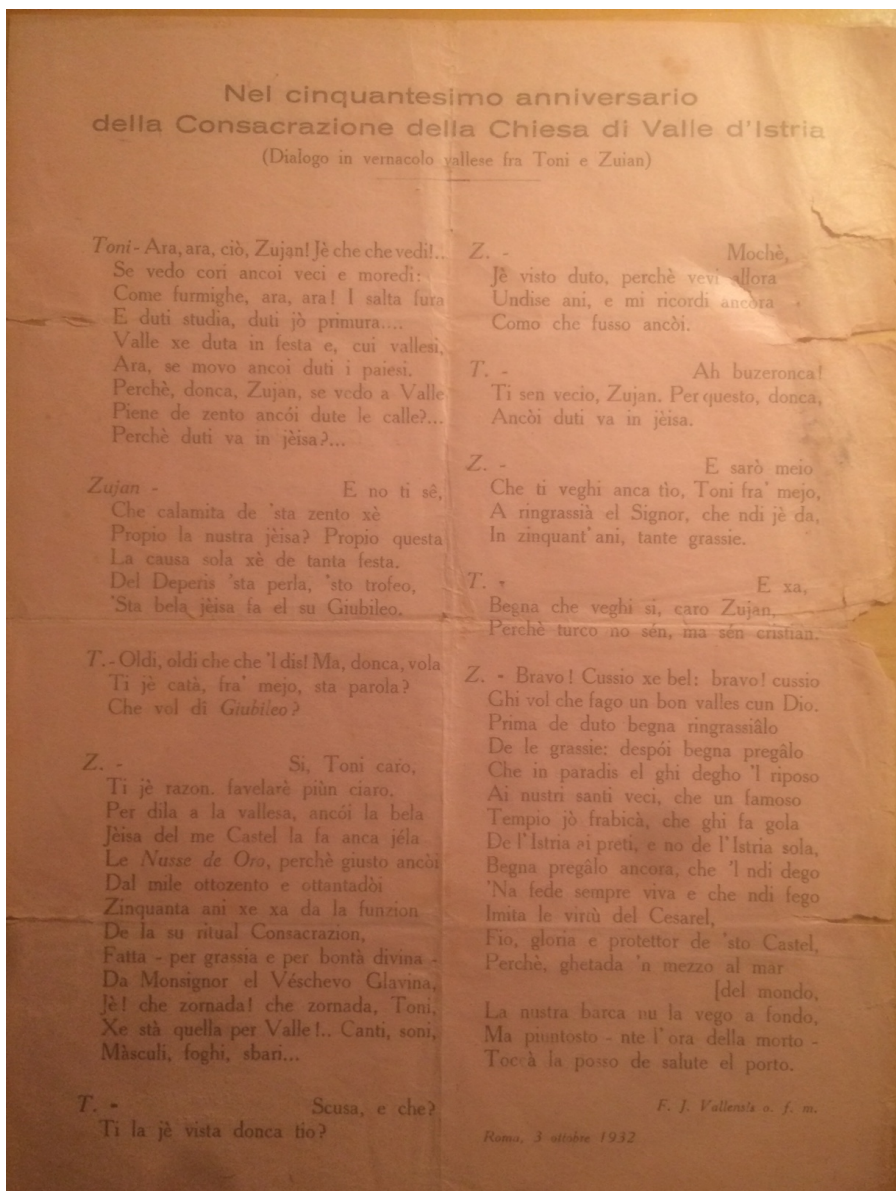 Nel cinquantesimo anniversario
della Consacrazione della Chiesa di Valle d'Istria
(Dialogo in vernacolo vallese fra Toni e Zuian)
Toni - Ara, ara, ciò, Zujan! Jè che che vedi!..
Se vedo cori ancoi veci e moredi:
Come furmighe, ara, ara! I salta fura
E duti studia, duti jò primura....
Valle xe duta in festa e, cui vallesi,
Ara, se movo ancoi duti i paiesi.
Perchè, donca, Zujan, se vedo a Valle
Piene de zento ancói dute le calle?...
Perchè duti va in jèisa?...
Zujan - E no ti sê,
Che calamita de 'sta zento xè
Propio la nustra jèisa? Propio questa
La causa sola xè de tanta festa.
Del Deperis 'sta perla, 'sto trofeo,
'Sta bela jèisa fa el su Giubileo.
T. - Oldi, oldi che che 'l dis! Ma, donca, vola
Ti jè catà, fra' mejo, sta parola?
Che vol di Giubileo?
Z. - Si, Toni caro,
Ti jè razon. favelarè piùn ciaro.
Per dila a la vallesa, ancói la bela
Jèisa del me Castel la fa anca jéla
Le Nusse de Oro, perchè giusto ancòi
Dal mile ottozento e ottantadòi
Zinquanta ani xe xa da la funzion
De la su ritual Consacrazion,
Fatta - per grassia e per bontà divina -
Da Monsignor el Véschevo Glavina,
Jè! che zornada! che zornada, Toni,
Xe stà quella per Valle!.. Canti, soni,
Màsculi, foghi, sbari...
T. - Scusa, e che?
Ti la jè vista donca tio?
Z. - Mochè,
Jè visto duto, perchè vevi allora
Undise ani, e mi ricordi ancòra
Como che fusso ancòi.
T. - Ah buzeronca!
Ti sen vecio, Zujan. Per questo, donca,
Ancòi duti va in jèisa.
Z. - E sarò meio
Che ti veghi anca tìo, Toni fra' mejo,
A ringrassià el Signor, che ndi jè da,
In zinquant' ani, tante grassie.
T. - E xa,
Begna che veghi si, caro Zujan,
Perchè turco no sén, ma sén cristian.
Z. - Bravo! Cussio xe bel: bravo! cussio
Ghi vol che fago un bon valles cun Dio.
Prima de duto begna ringrassiâlo
De le grassie: despói begna pregâlo
Che in paradis el ghi degho 'l riposo
Ai nustri santi veci, che un famoso
Tempio jò frabicà, che ghi fa gola
De l'Istria ai preti, e no de l'Istria sola,
Begna pregâlo ancora, che 'l ndi dego
'Na fede sempre viva e che ndi fego
Imita le virtù del Cesarel,
Fio, gloria e protettor de 'sto Castel,
Perchè, ghetada 'n mezzo al mar
[del mondo,
La nustra barca nu la vego a fondo,
Ma piuntosto - nte l'ora della morto -
Toccà la posso de salute el porto.
F. J. Vallensis o. f. m.
Roma, 3 ottobre 1932